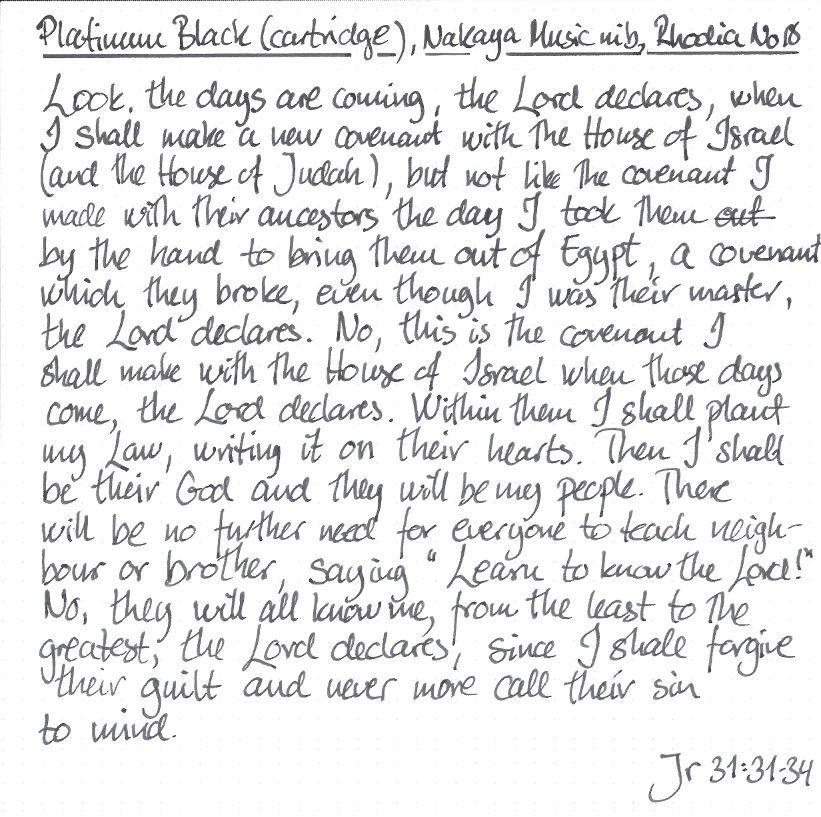 Platinum Black (cartridge), Nakaya Music nib, Rhodia No 18
Look, the days are coming, the Lord declares, when
I shall make a new covenant with the House of Israel
(and the House of Judah), but not like the covenant I
made with their ancestors the day I took them out
by the hand to bring them out of Egypt, a covenant
which they broke, even though I was their master,
the Lord declares. No, this is the covenant I
shall make with the House of Israel when those days
come, the Lord declares. Within them I shall plant
my Law, writing it on their hearts. Then I shall
be their God and they will be my people. There
will be no further need for everyone to teach neigh-
bour or brother, saying "Learn to know the Lord!"
No, they will all know me, from the least to the
greatest, the Lord declares, since I shall forgive
their guilt and never more call their sin
to mind.
Jr 31:31-34